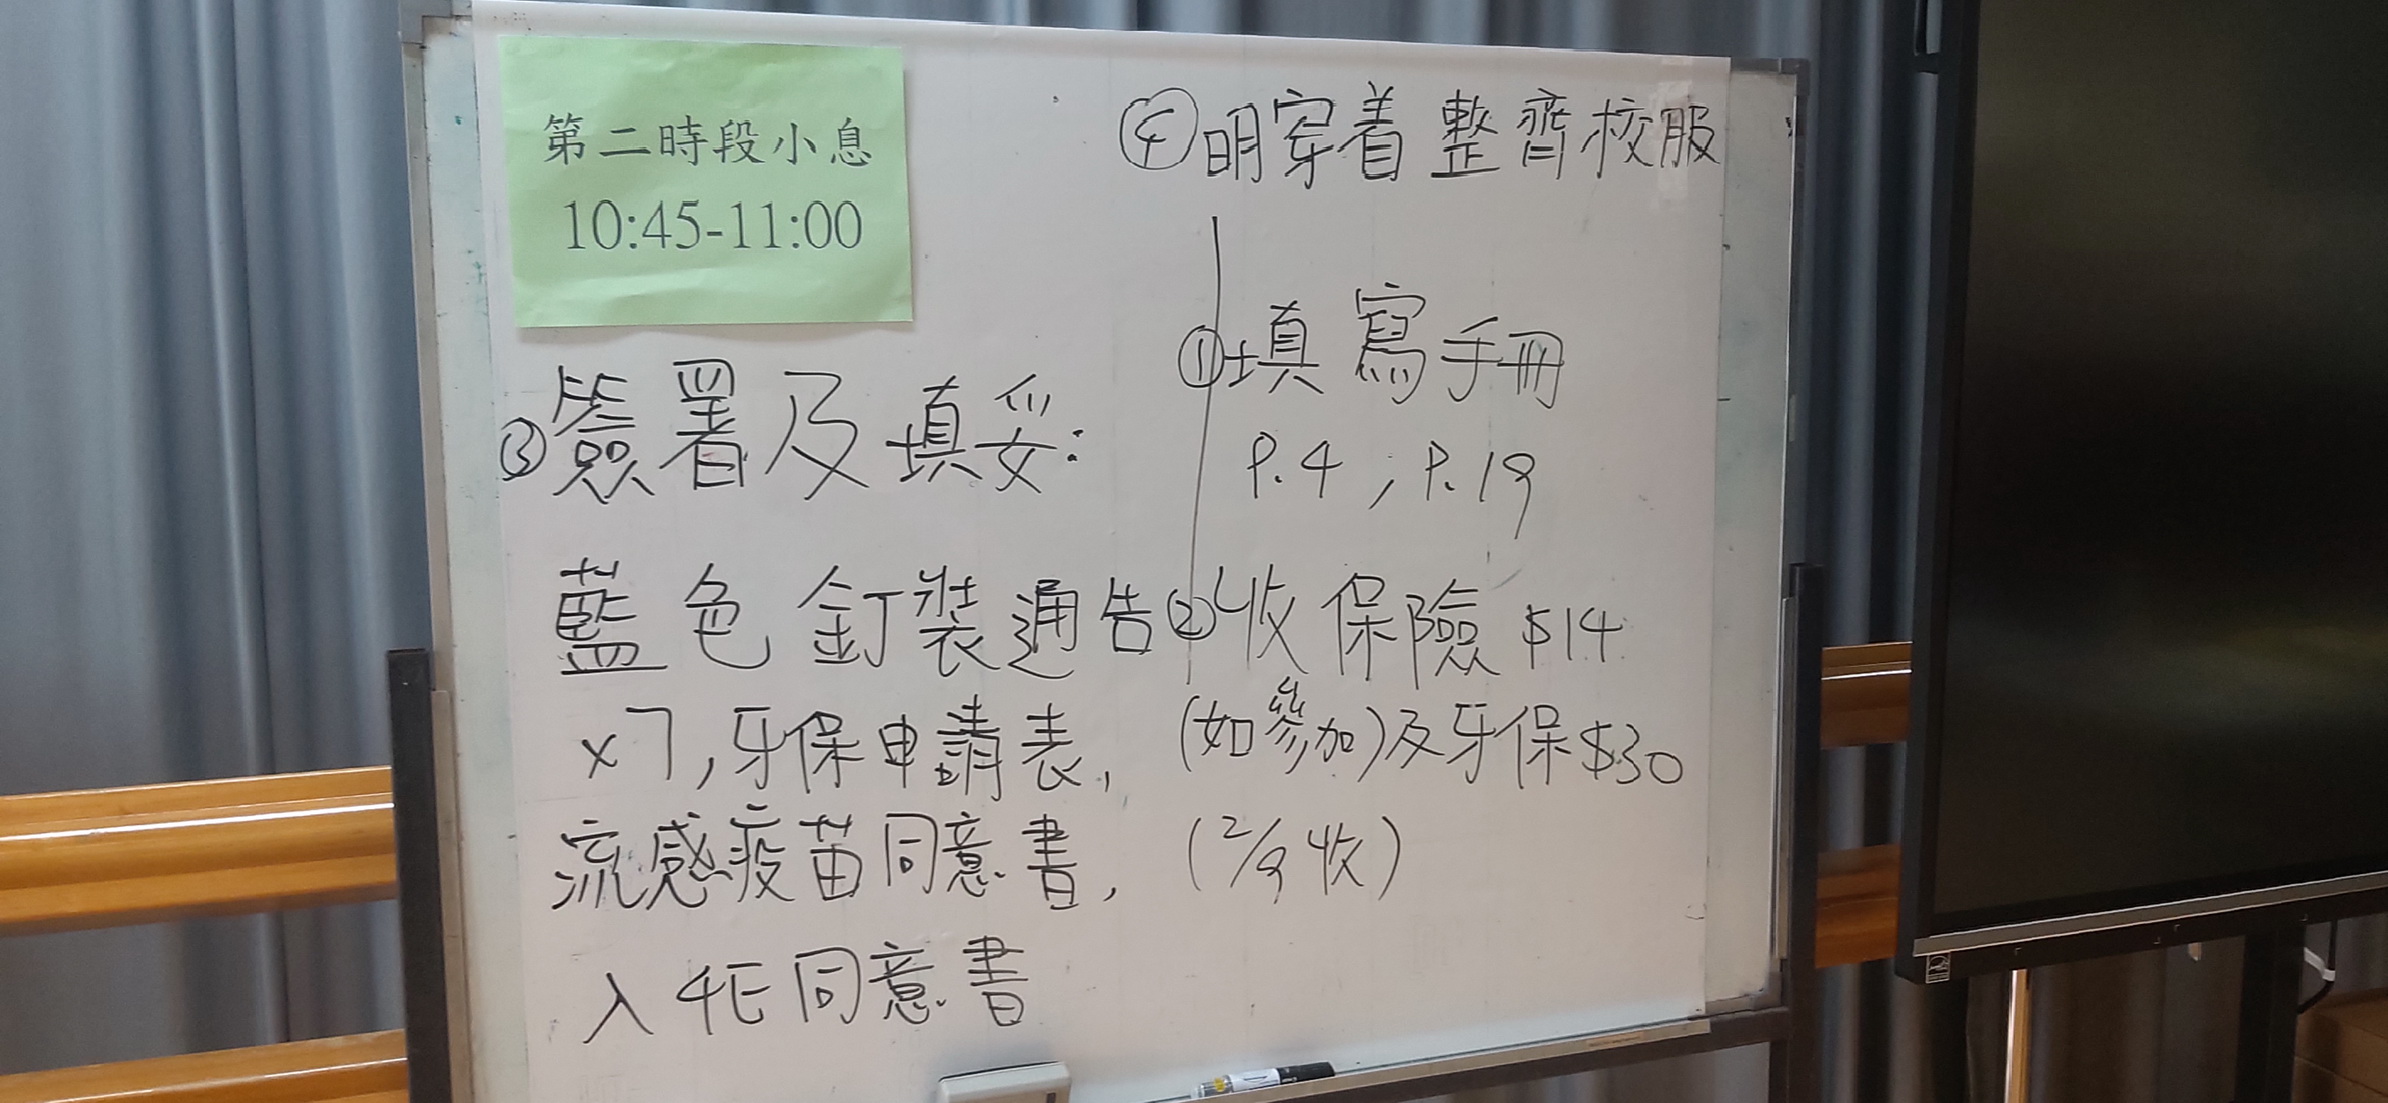 第二時段小息
10:45-11:00
④明穿着整齊校服
①填寫手冊
P.4 ; P.19
②收保險 $14
(如參加)及牙保$30
(2/9收)
③簽署及填妥:
藍色釘裝通告
x7,牙保申請表,
流感疫苗同意書,
入4E同意書